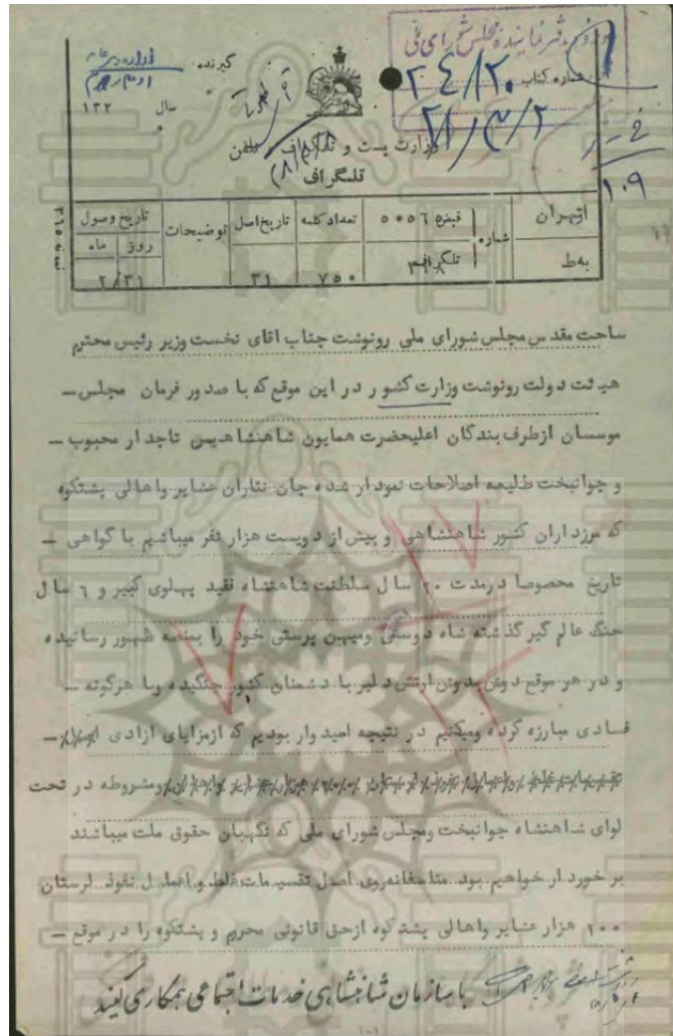 دفتر نماینده مجلس شورای ملی
شماره کتاب ۲۴/۲۰
۲۱/۳/۲
۱۰۹
گیرنده
سال ۱۳۲
وزارت پست و تلگراف و تلفن
تلگراف
از تهران
به ط
شماره
قبض ۵۰۵۶
تلگراف
تعداد کلمه
۷۵۰
تاریخ اصل
۳۱
توضیحات
تاریخ وصول
روز ماه
۲/۳۱
ساحت مقدس مجلس شورای ملی رونوشت جناب اقای نخست وزیر رئیس محترم
هیئت دولت رونوشت وزارت کشور در این موقع که با صدور فرمان مجلس –
موسسان ازطرف بندگان اعلیحضرت همایون شاهنشاهیمن تاجدار محبوب –
و جوانبخت طلیعه اصلاحات نمودار شده جان نثاران عشایر واهالی پشتکوه
که مرزداران کشور شاهنشاهی و بیش از دویست هزار نفر میباشیم با گواهی –
تاریخ مخصوصا درمدت ۲۰ سال سلطنت شاهنشاه فقید پهلوی کبیر و ۶ سال
جنگ عالم گیر گذشته شاه دوستی ومیهن پرستی خود را بمنصه ظهور رسانیده
و در هر موقع دوش بدوش ارتش دلیر با دشمنان کشور جنگیده وبا هرگونه –
فسادی مبارزه کرده ومیکنیم در نتیجه امیدوار بودیم که ازمزایای ازادی
ومشروطه در تحت
لوای شاهنشاه جوانبخت ومجلس شورای ملی که نگهبان حقوق ملت میباشند
برخوردار خواهیم بود متاسفانه روی اصل تقسیمات غلط و اعمال نفوذ لرستان
۲۰۰ هزار عشایر واهالی پشتکوه ازحق قانونی محروم و پشتکوه را در موقع –
با سازمان شاهنشاهی خدمات اجتماعی همکاری کنید